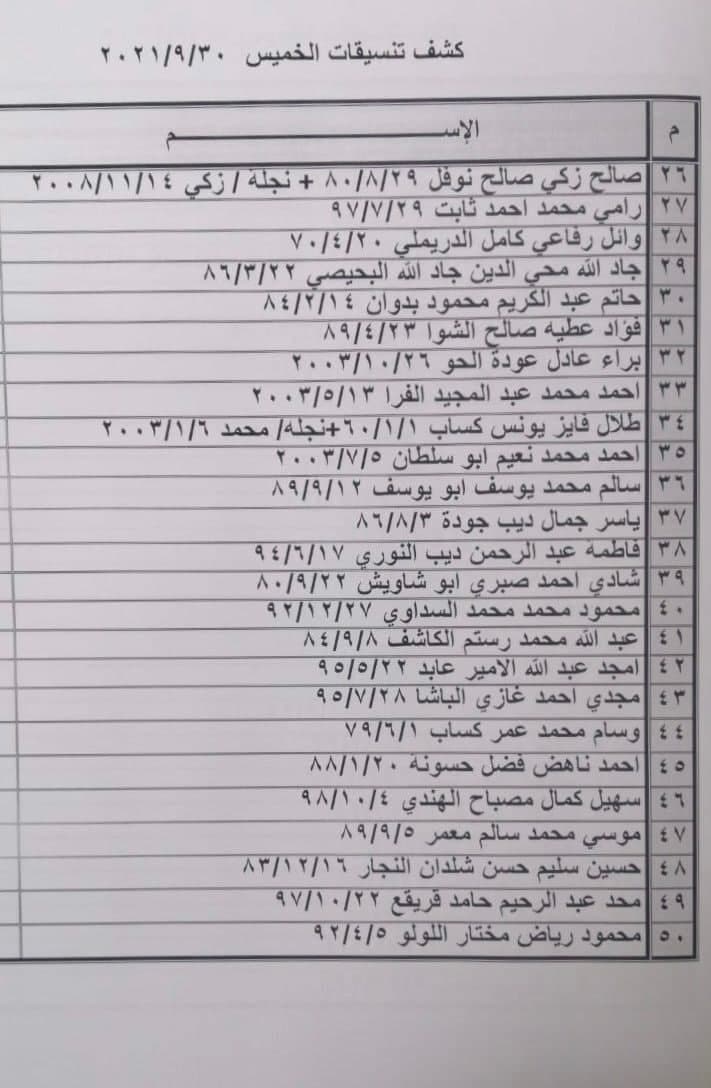 كشف تنسيقات الخميس ٢٠٢١/٩/٣٠
م الإســـــــــــــــــم
٢٦ صالح زكي صالح نوفل ٨٠/٨/٢٩ + نجلة / زكي ٢٠٠٨/١١/١٤
٢٧ رامي محمد احمد ثابت ٩٧/٧/٢٩
٢٨ وائل رفاعي كامل الدريملي ٧٠/٤/٢٠
٢٩ جاد الله محي الدين جاد الله البحيصي ٨٦/٣/٢٢
٣٠ حاتم عبد الكريم محمود بدوان ٨٤/٢/١٤
٣١ فؤاد عطيه صالح الشوا ٨٩/٤/٢٣
٣٢ براء عادل عودة الحو ٢٠٠٣/١٠/٢٦
٣٣ احمد محمد عبد المجيد الفرا ٢٠٠٣/٥/١٣
٣٤ طلال فايز يونس كساب ٦٠/١/١+نجله/ محمد ٢٠٠٣/١/٦
٣٥ احمد محمد نعيم ابو سلطان ٢٠٠٣/٧/٥
٣٦ سالم محمد يوسف ابو يوسف ٨٩/٩/١٢
٣٧ ياسر جمال ديب جودة ٨٦/٨/٣
٣٨ فاطمة عبد الرحمن ديب النوري ٩٤/٦/١٧
٣٩ شادي احمد صبري ابو شاويش ٨٠/٩/٢٢
٤٠ محمود محمد محمد السداوي ٩٢/١٢/٢٧
٤١ عبد الله محمد رستم الكاشف ٨٤/٩/٨
٤٢ امجد عبد الله الامير عابد ٩٥/٥/٢٢
٤٣ مجدي احمد غازي الباشا ٩٥/٧/٢٨
٤٤ وسام محمد عمر كساب ٧٩/٦/١
٤٥ احمد ناهض فضل حسونة ٨٨/١/٢٠
٤٦ سهيل كمال مصباح الهندي ٩٨/١٠/٤
٤٧ موسي محمد سالم معمر ٨٩/٩/٥
٤٨ حسين سليم حسن شلدان النجار ٨٣/١٢/١٦
٤٩ محد عبد الرحيم حامد قريقع ٩٧/١٠/٢٢
٥٠ محمود رياض مختار اللولو ٩٢/٤/٥